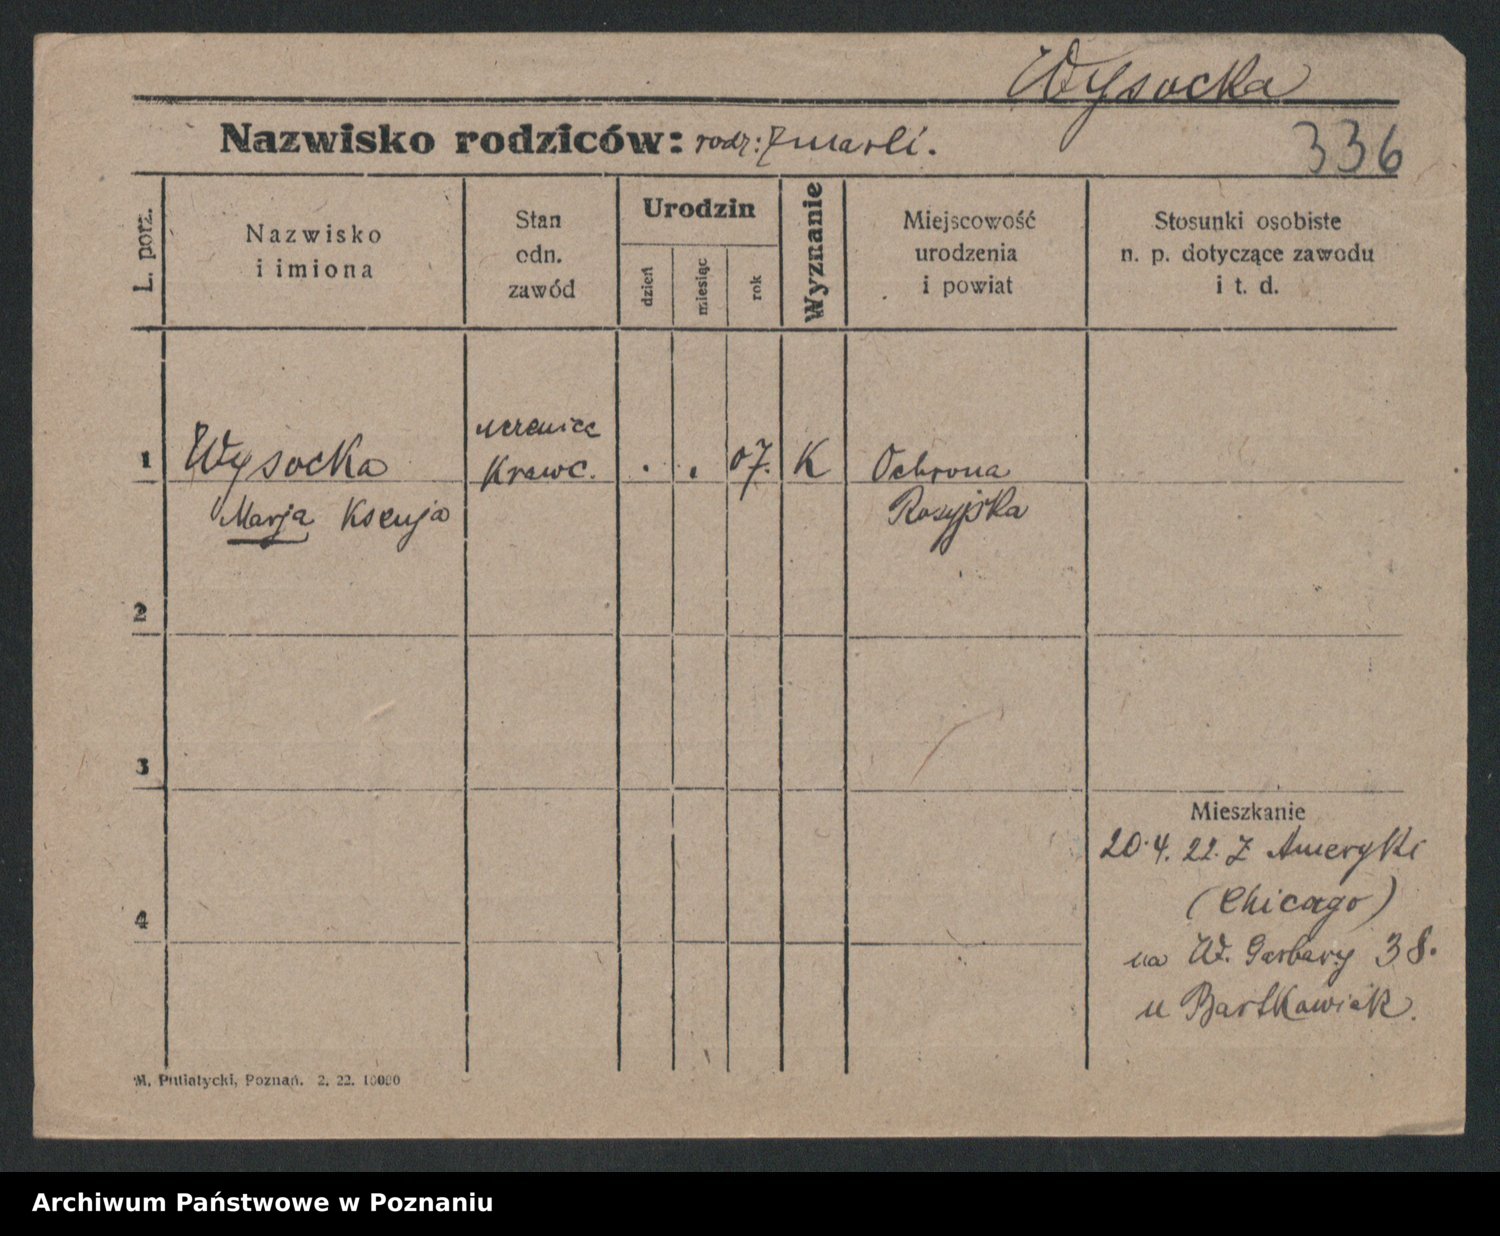 Wysocka
Nazwisko rodziców: rodz: zmarli.
336
L. porz.
Nazwisko
i imiona
Stan
odn.
zawód
Urodzin
dzień
miesiąc
rok
Wyznanie
Miejscowość
urodzenia
i powiat
Stosunki osobiste
n. p. dotyczące zawodu
i t. d.
1
Wysocka
Marja Ksenja
Krawc.
. . 07. K
Ochrona
Rosyjska
2
3
4
Mieszkanie
20.4.22. z Ameryki
(Chicago)
na W. Garbary 38.
u Bartkowiak.
M. Putiatycki, Poznań. 2. 22. 10000
Archiwum Państwowe w Poznaniu